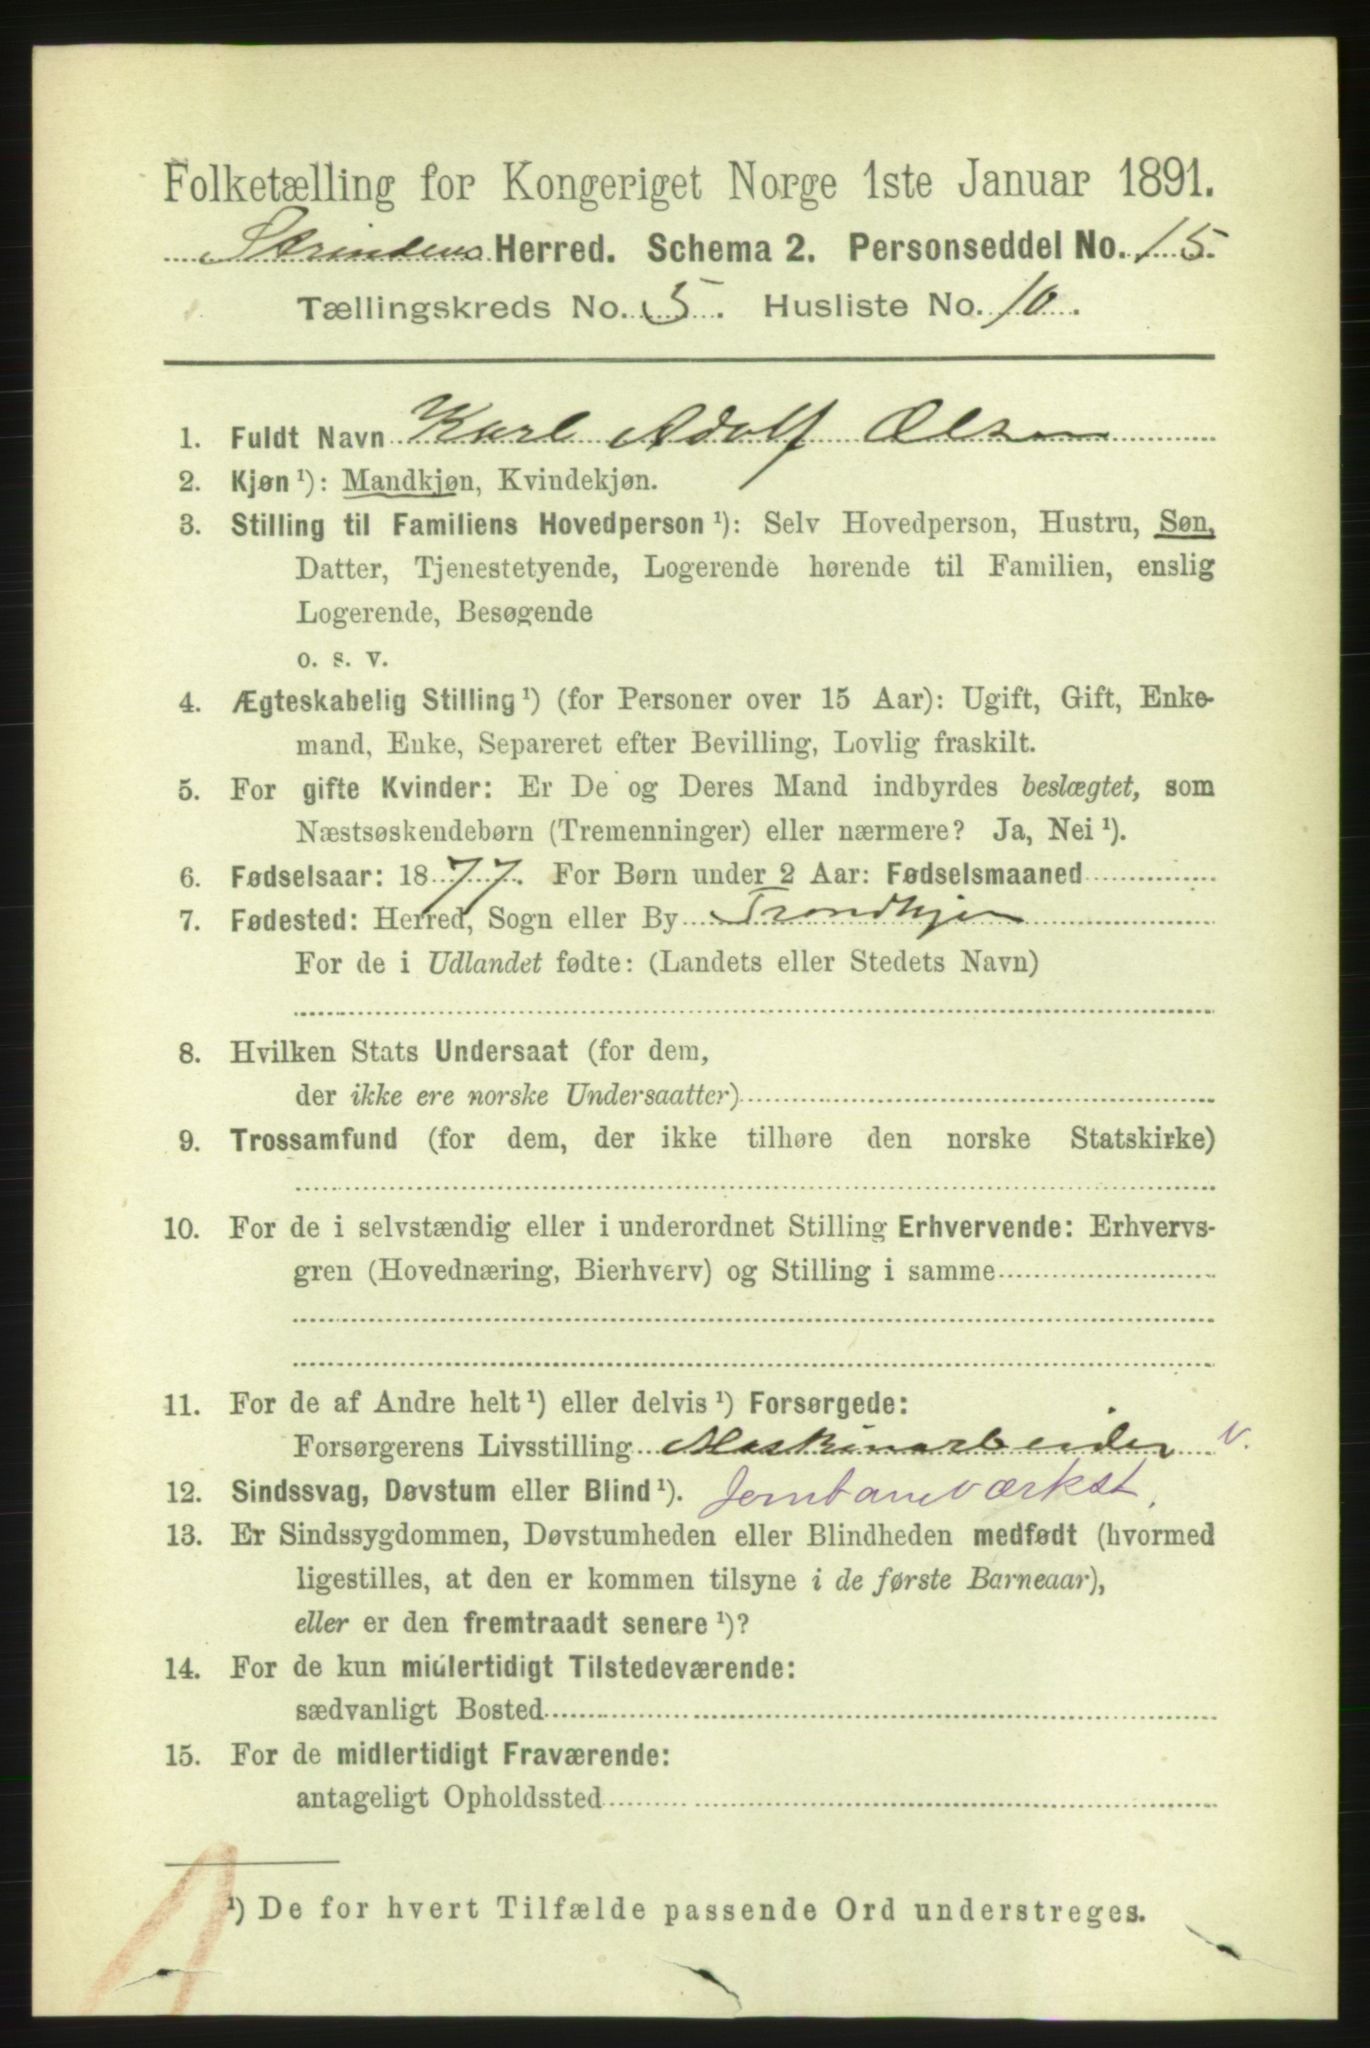 Folketælling for Kongeriget Norge 1ste Januar 1891.
Strindens Herred. Schema 2. Personseddel No. 15.
Tællingskreds No. 5. Husliste No. 10.
1. Fuldt Navn Karl Adolf Olsen
2. Kjøn ¹): Mandkjøn, Kvindekjøn.
3. Stilling til Familiens Hovedperson ¹): Selv Hovedperson, Hustru, Søn,
Datter, Tjenestetyende, Logerende hørende til Familien, enslig
Logerende, Besøgende
o. s. v.
4. Ægteskabelig Stilling ¹) (for Personer over 15 Aar): Ugift, Gift, Enke-
mand, Enke, Separeret efter Bevilling, Lovlig fraskilt.
5. For gifte Kvinder: Er De og Deres Mand indbyrdes beslægtet, som
Næstsøskendebørn (Tremenninger) eller nærmere? Ja, Nei ¹).
6. Fødselsaar: 1877. For Børn under 2 Aar: Fødselsmaaned
7. Fødested: Herred, Sogn eller By Trondhjem
For de i Udlandet fødte: (Landets eller Stedets Navn)
8. Hvilken Stats Undersaat (for dem,
der ikke ere norske Undersaatter)
9. Trossamfund (for dem, der ikke tilhøre den norske Statskirke)
10. For de i selvstændig eller i underordnet Stilling Erhvervende: Erhvervs-
gren (Hovednæring, Bierhverv) og Stilling i samme
11. For de af Andre helt ¹) eller delvis ¹) Forsørgede:
Forsørgerens Livsstilling Maskinarbeider v.
12. Sindssvag, Døvstum eller Blind ¹). Jernbaneværkst.
13. Er Sindssygdommen, Døvstumheden eller Blindheden medfødt (hvormed
ligestilles, at den er kommen tilsyne i de første Barneaar),
eller er den fremtraadt senere ¹)?
14. For de kun midlertidigt Tilstedeværende:
sædvanligt Bosted
15. For de midlertidigt Fraværende:
antageligt Opholdssted
¹) De for hvert Tilfælde passende Ord understreges.